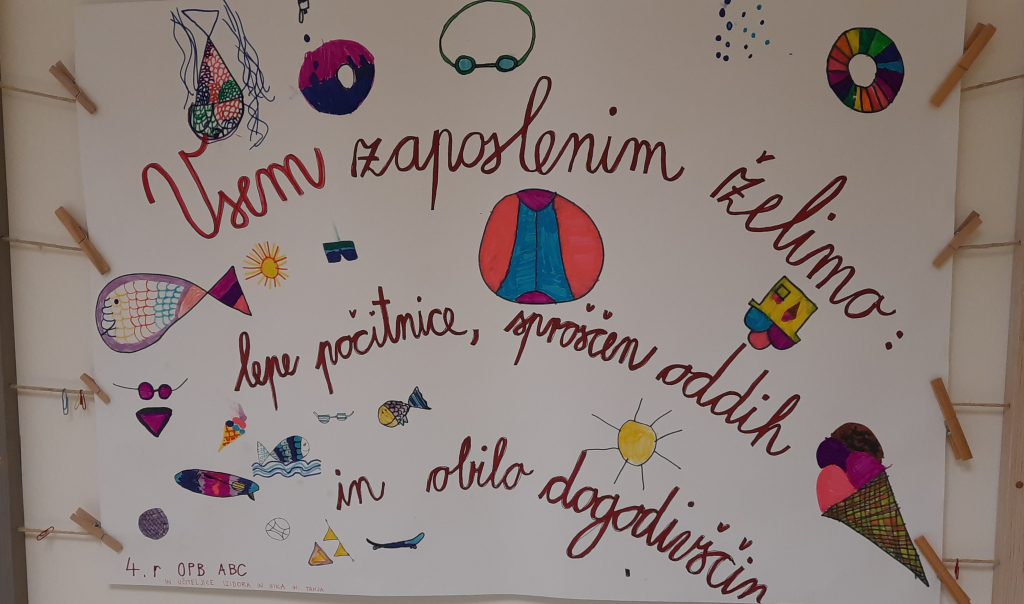 Vsem zaposlenim želimo:
lepe počitnice, sproščen oddih
in obilo dogodivščin
4. r OPB ABC
IN UČITELJICE IZIDORA IN NIKA IN TANJA